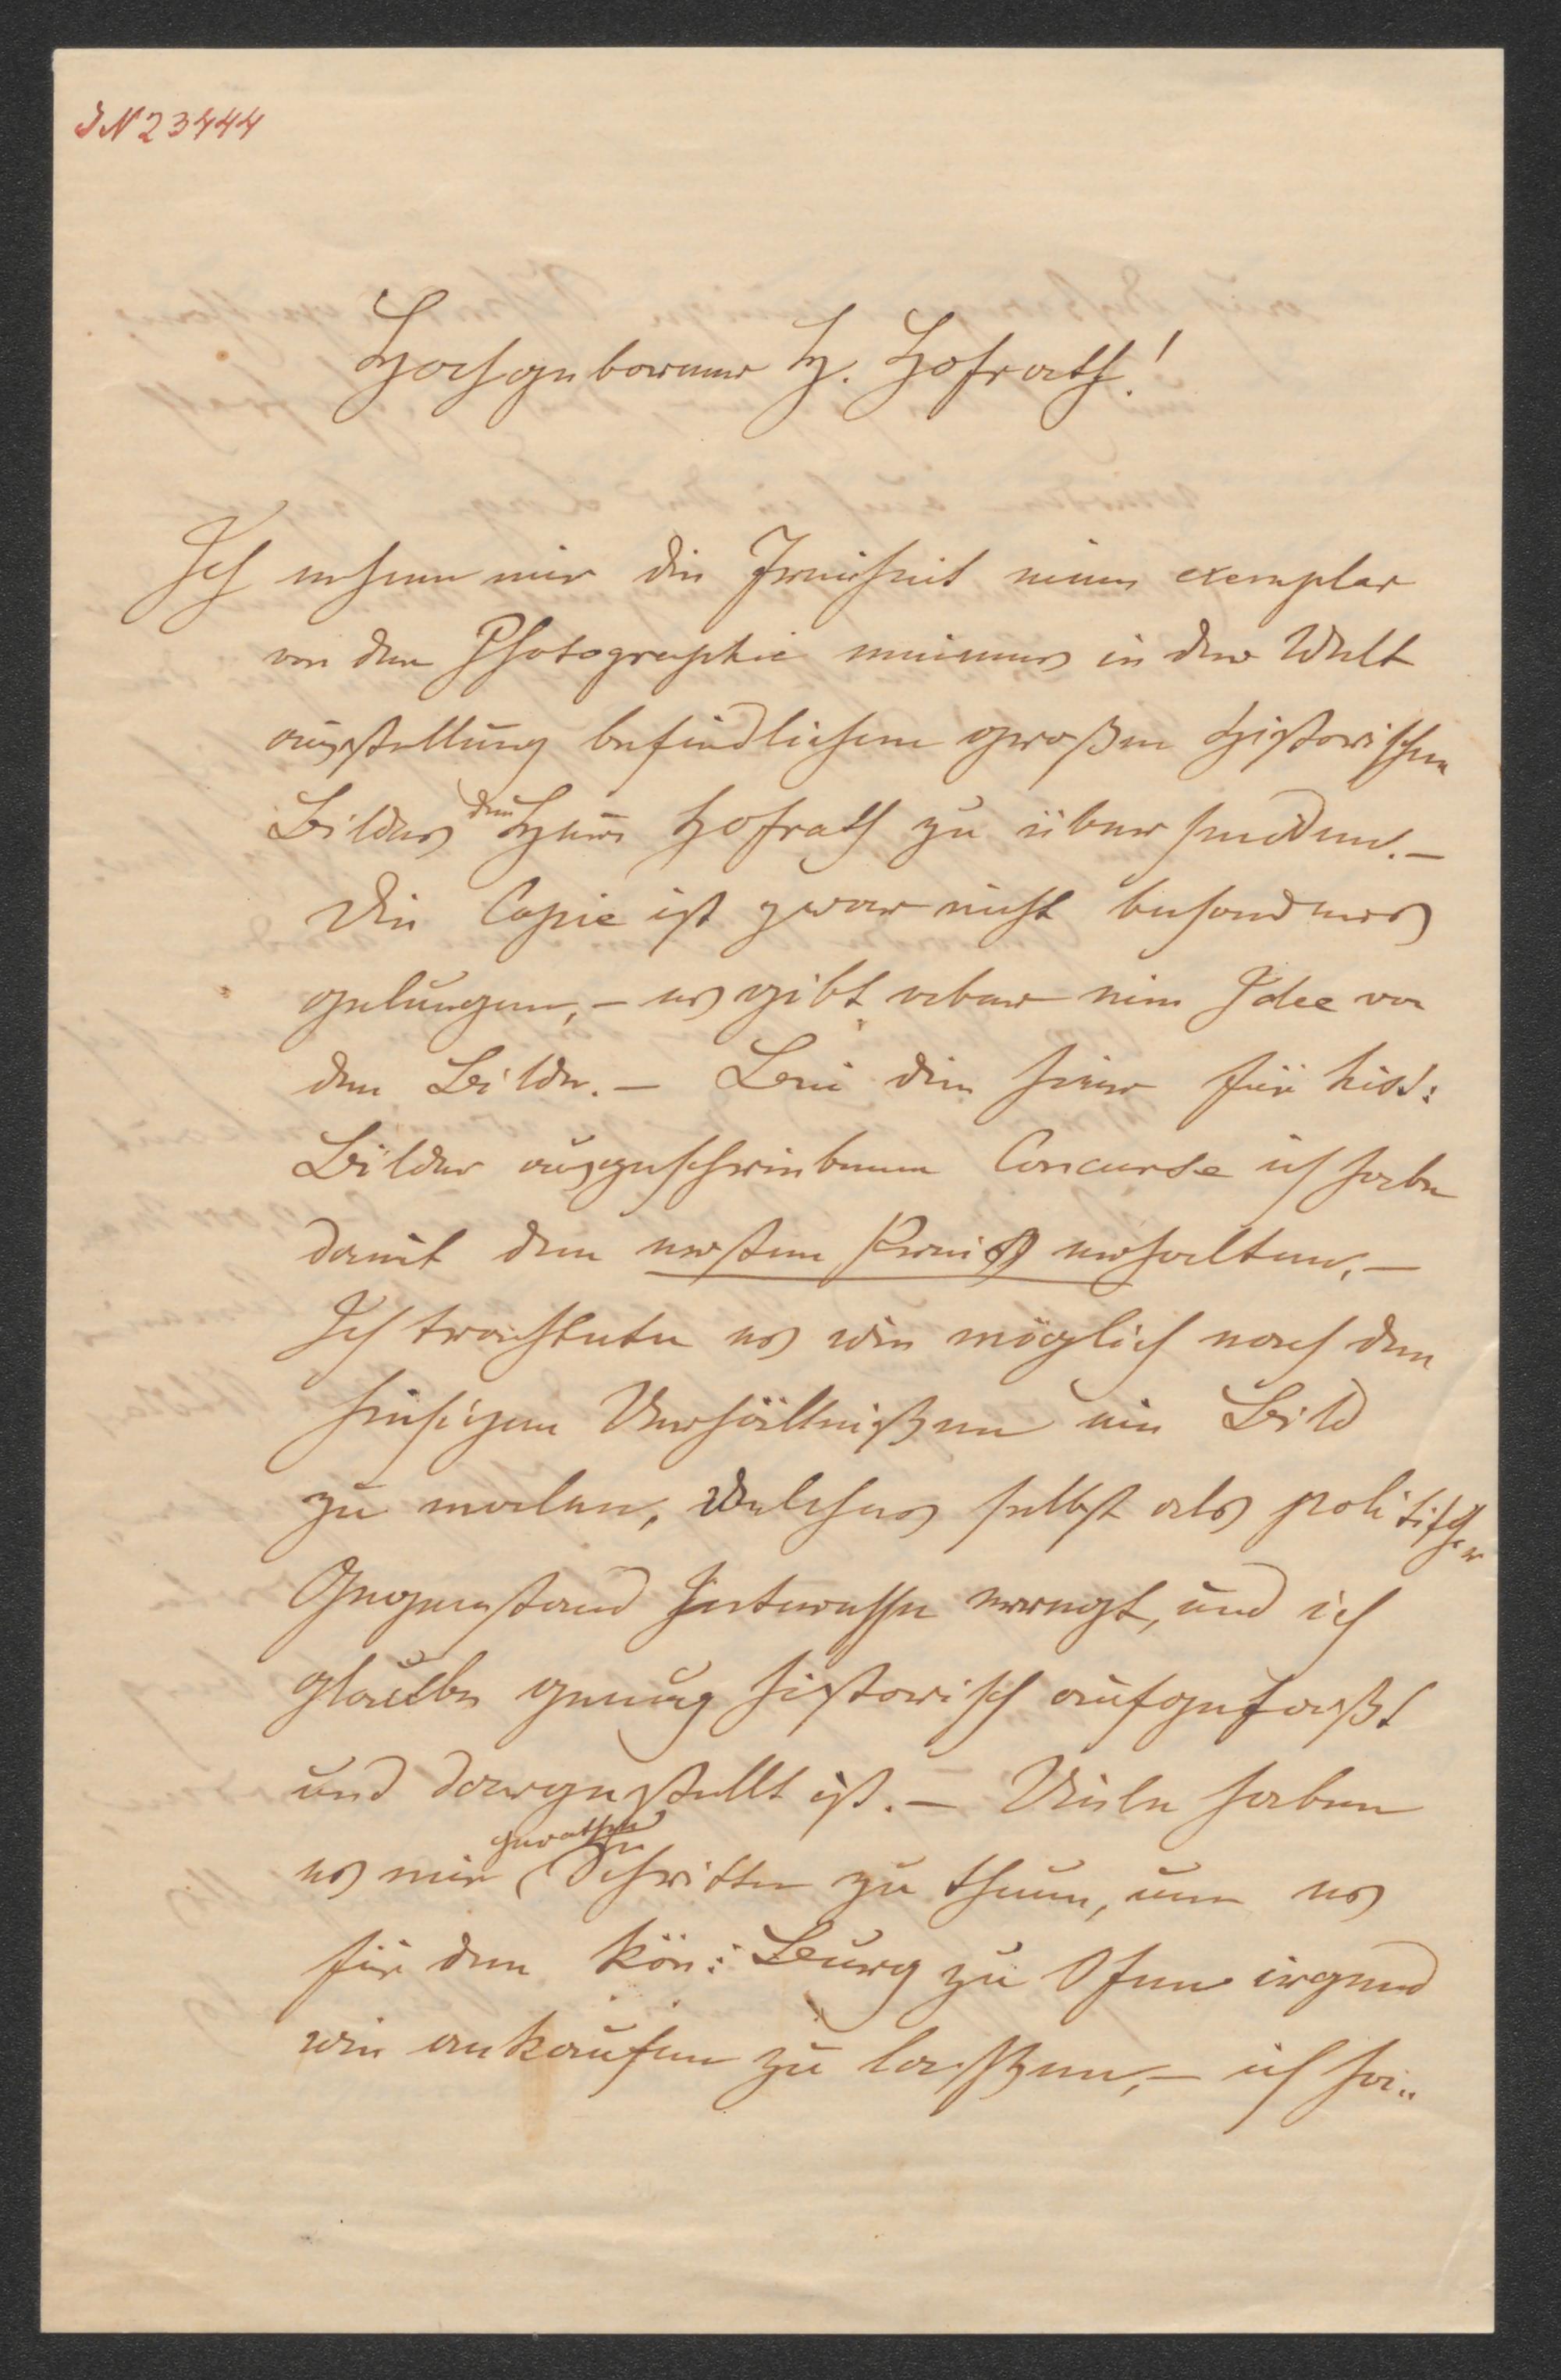 JN 23444
Hochgeborener H. Hofrath!
Ich nehme mir die Freiheit eines exemplar
von der Photographie meines in der Welt
ausstellung befindlichen großen historischen
Bildes dem Herrn Hofrath zu übersenden. –
Die Copie ist zwar nicht besonders
gelungen, – es gibt aber eine Idee von
dem Bilde. – Bei die hier für hist:
Bilder ausgeschriebenen Concurse ich habe
damit den ersten Preis erhalten. –
Ich trachtete es wie möglich nach den
hiesigen Verhältnißen ein Bild
zu malen, welches selbst als politischer
Gegenstand Interesse erregt, und ich
glaube genug historisch aufgefaßt
und dargestellt ist. – Viele haben
es mir gerathen Schritte zu thun, um es
für den kön: Burg zu Ofen irgend
wie ankaufen zu laßen, – ich ha..